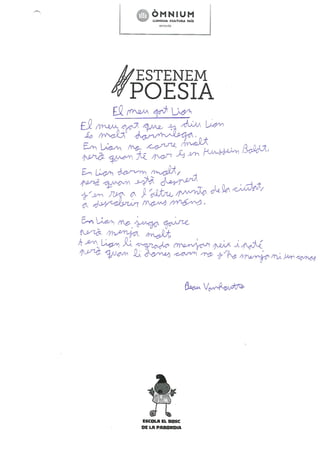 ÒMNIUM
ESTENEM
POESIA
El meu gat Lian
El meu gat que es diu Lian
és molt dormilega.
En Lian no corre molt
però quan té por és en Hussein Boldt.
En Lian dorm molt,
però quan està despert
s'en va a l'altre punta de la ciutat,
a descobrir nous móns.
En Lian no juga gaire
però menja molt,
A en Lian li agrada menjar peix i paté,
però quan li dones carn no s'ho menja ni un gos
Beau Vanhoutte
ESCOLA EL BOSC
DE LA PABORDIA